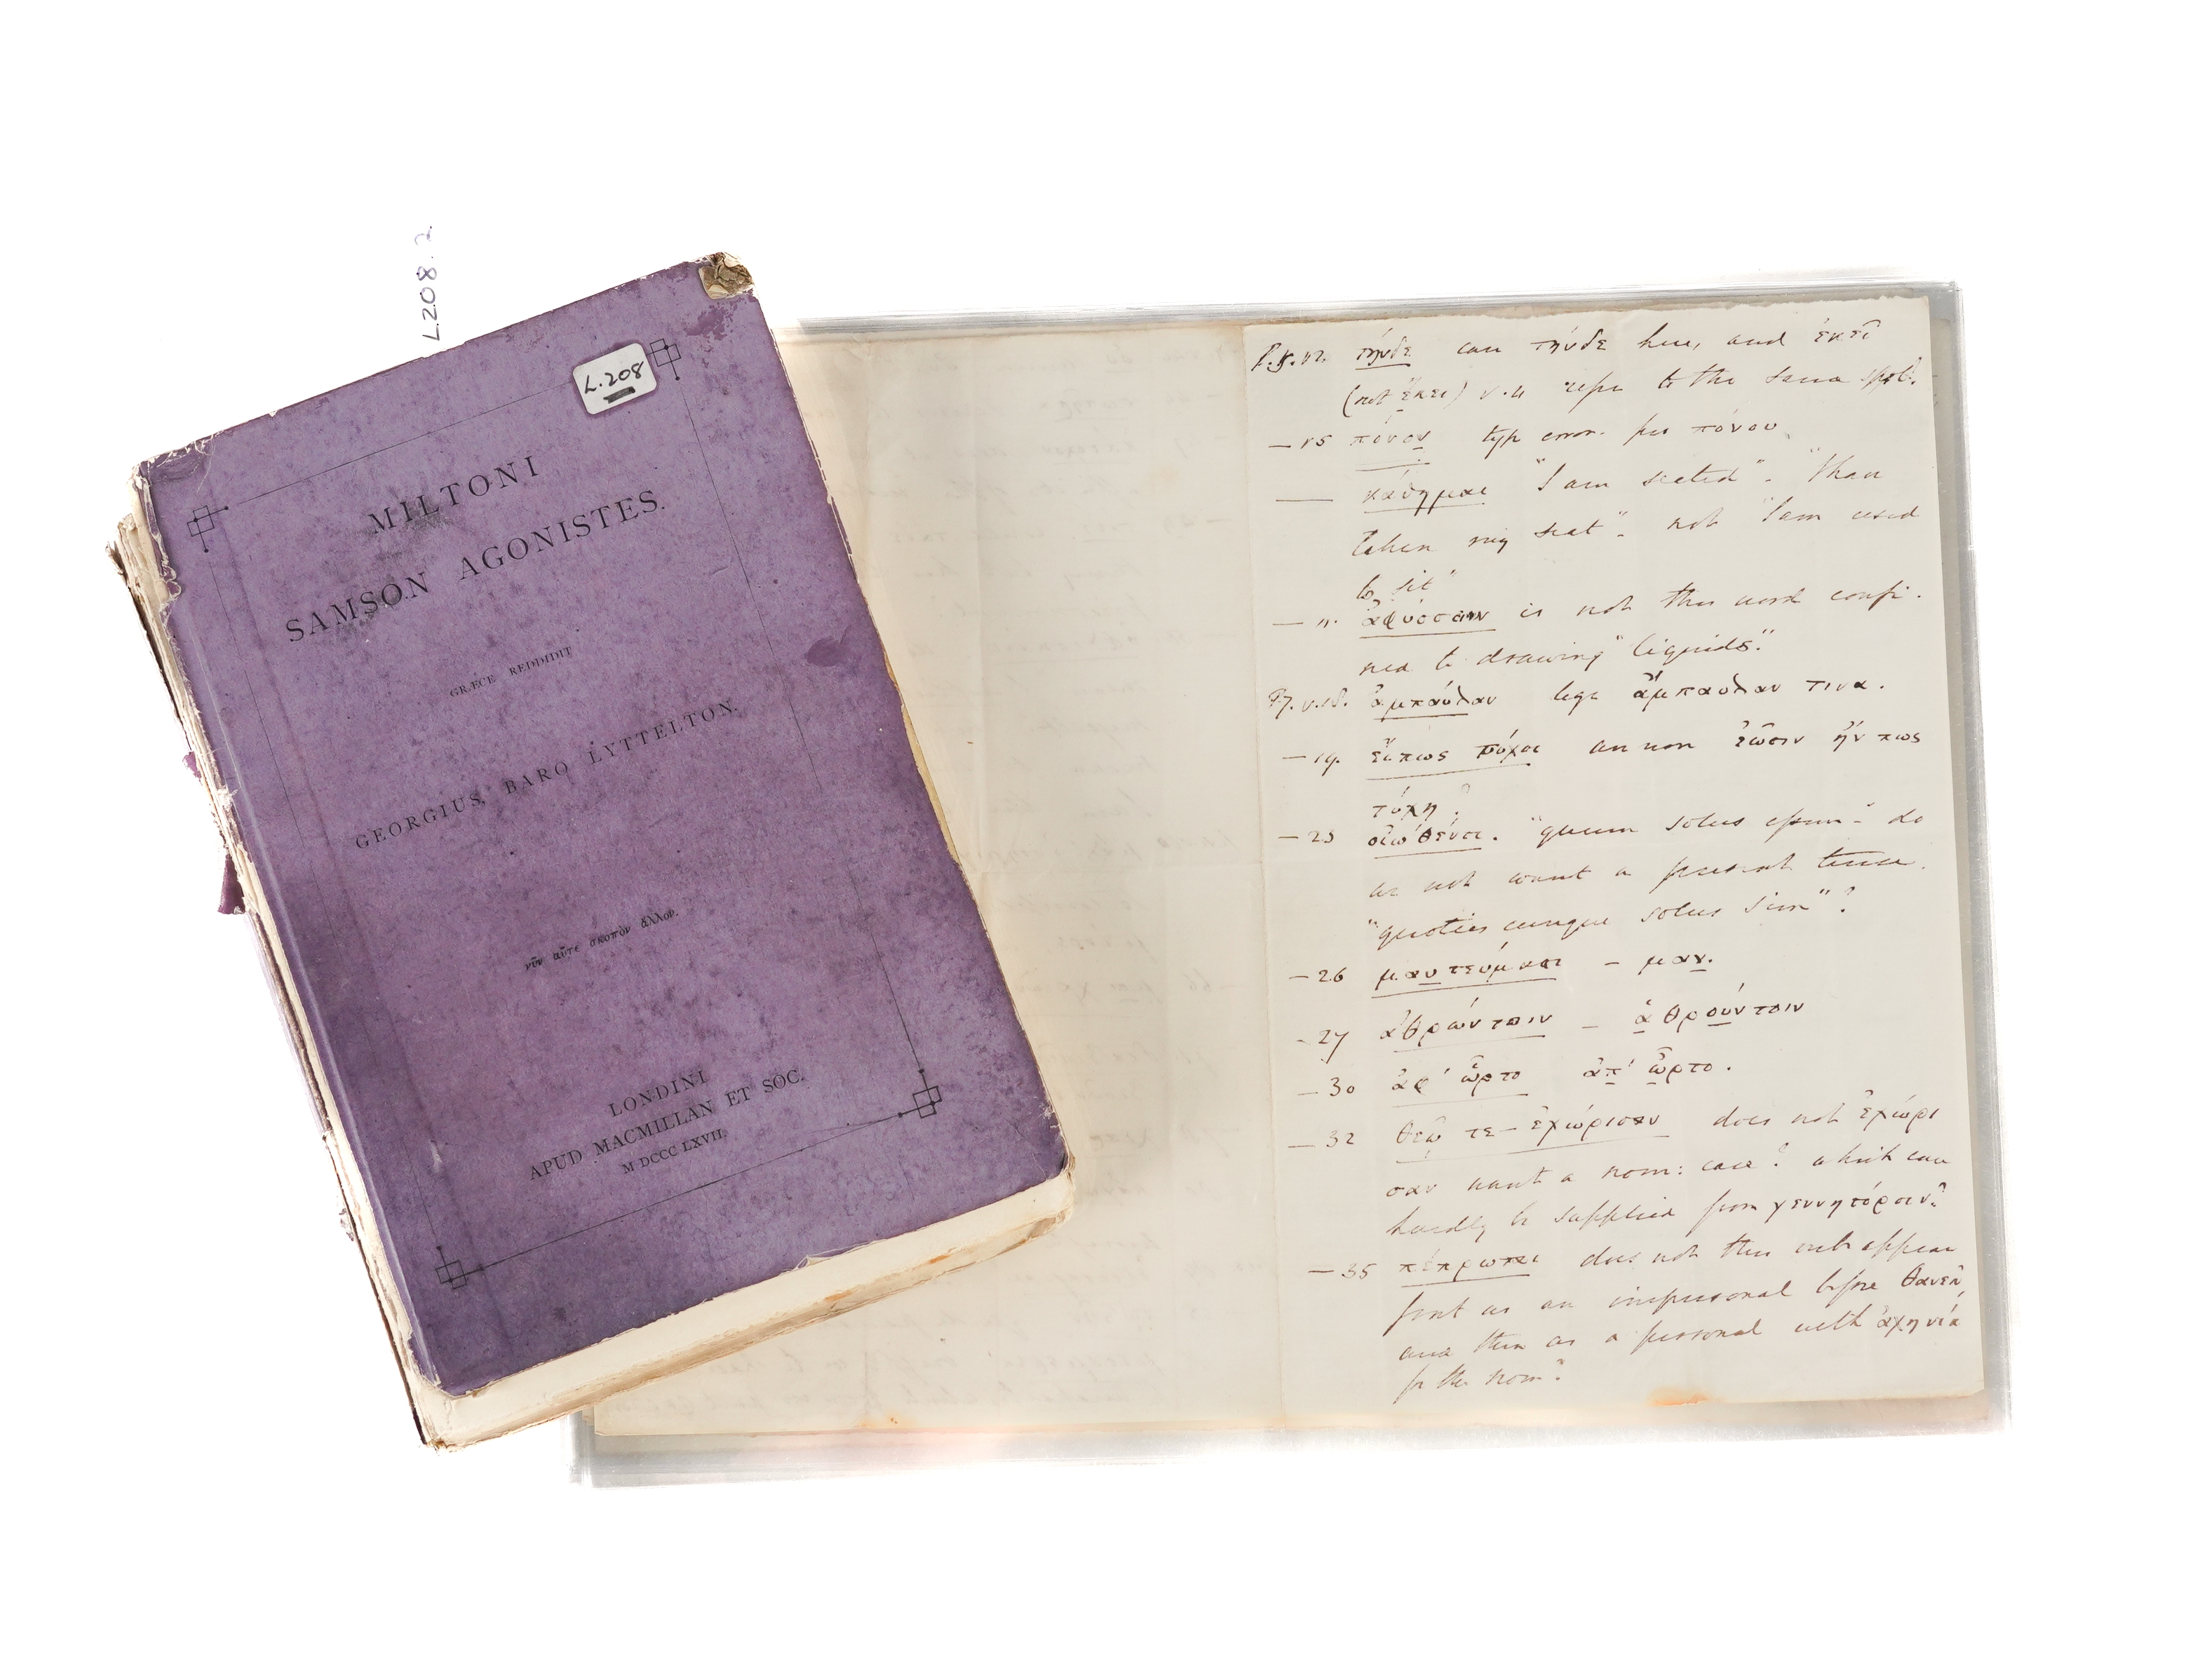 L208.2
L.208
MILTONI
SAMSON AGONISTES.
GRÆCE REDDIDIT
GEORGIUS, BARO LYTTELTON.
νῦν αὖτε σκοπὸν ἄλλον.
LONDINI
APUD MACMILLAN ET SOC.
M DCCC LXVII.
τήνδε can τήνδε here, and ἐκεῖ
(not ἔκει) refer to the same spot.
— 15 πόνον typ error for πόνου
— κάθημαι "I am seated". "I have
taken my seat". not "I am used
to sit"
— ἀφύσσειν is not this word confi-
ned to drawing "liquids."
ἀμπαύλαν lege ἄμπαυλαν τινα.
— 19. εἴπως τύχοι an non ἐῶσιν ἤν πως
τύχῃ?
— 23 οἰωθέντι. "quum solus essem" do
we not want a present tense.
"quoties cunque solus sim"?
— 26 μαυτεύμασι – μαν.
— 27 ἀθρώντοιν – ἀθρούντοιν
— 30 ἀφ' ὦρτο ἀπ' ὦρτο.
— 32 θεῷ τε – ἐχώρισαν does not ἐχώρι
σαν want a nom: case? which can
hardly be supplied from γεννητόροιν?
— 35 πέπρωται does not this verb appear
first as an impersonal before θανεῖν,
and then as a personal with ἀχηνία
for the nom?